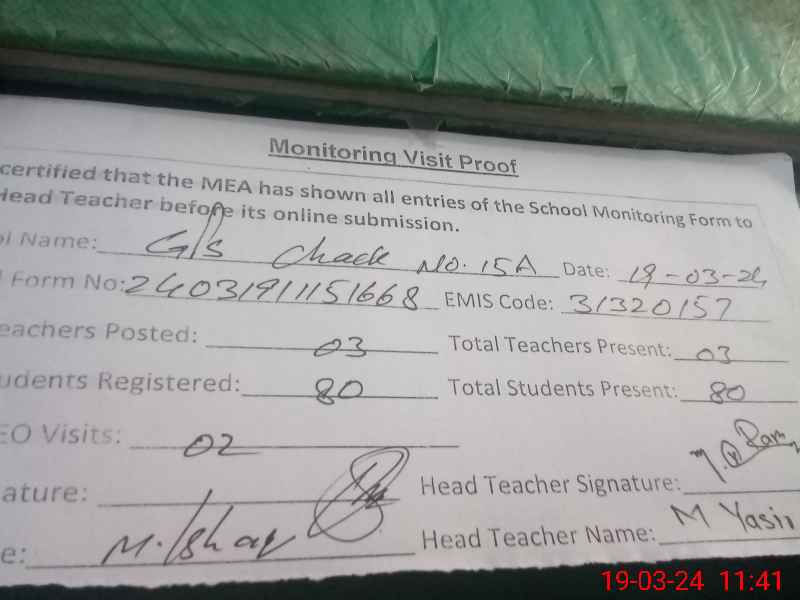 Monitoring Visit Proof
certified that the MEA has shown all entries of the School Monitoring Form to
Head Teacher before its online submission.
ol Name: G/S Chack No. 15A Date: 19-03-24
Form No: 240319111151668 EMIS Code: 31320157
eachers Posted: 03 Total Teachers Present: 03
udents Registered: 80 Total Students Present: 80
EO Visits: 02
ature: Head Teacher Signature:
e: M. Ishaq Head Teacher Name: M Yasir
19-03-24 11:41